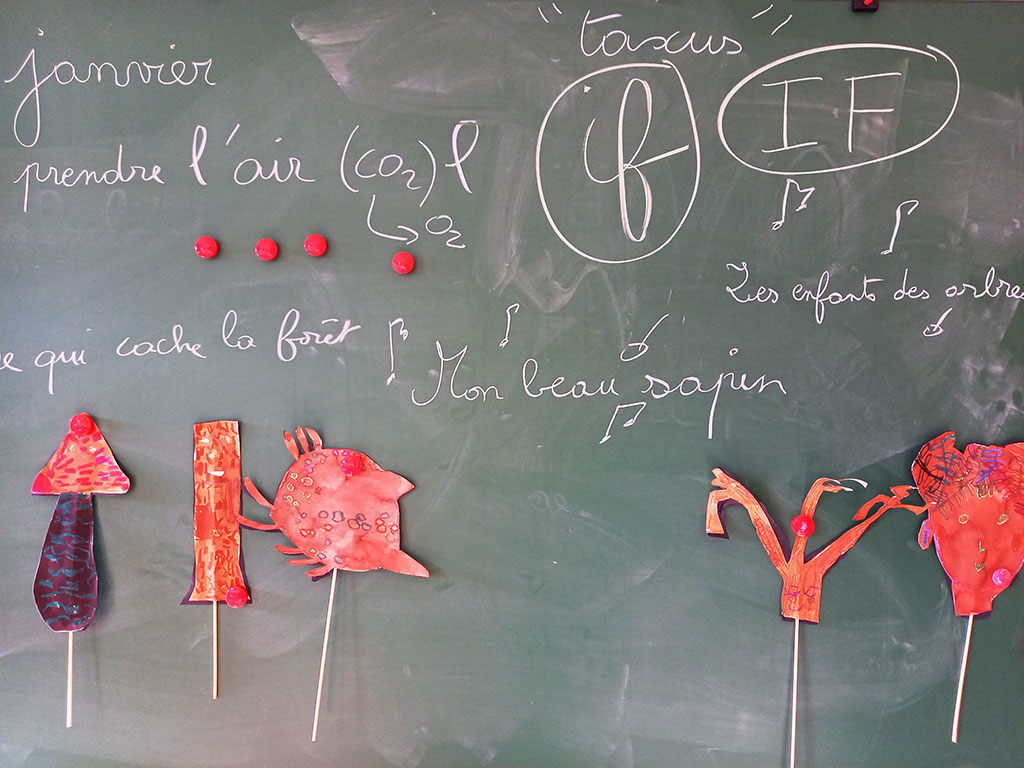 janvier
"taxus"
if
IF
prendre l'air (CO₂) l
O₂
Les enfants des arbre
qui cache la forêt
Mon beau sapin